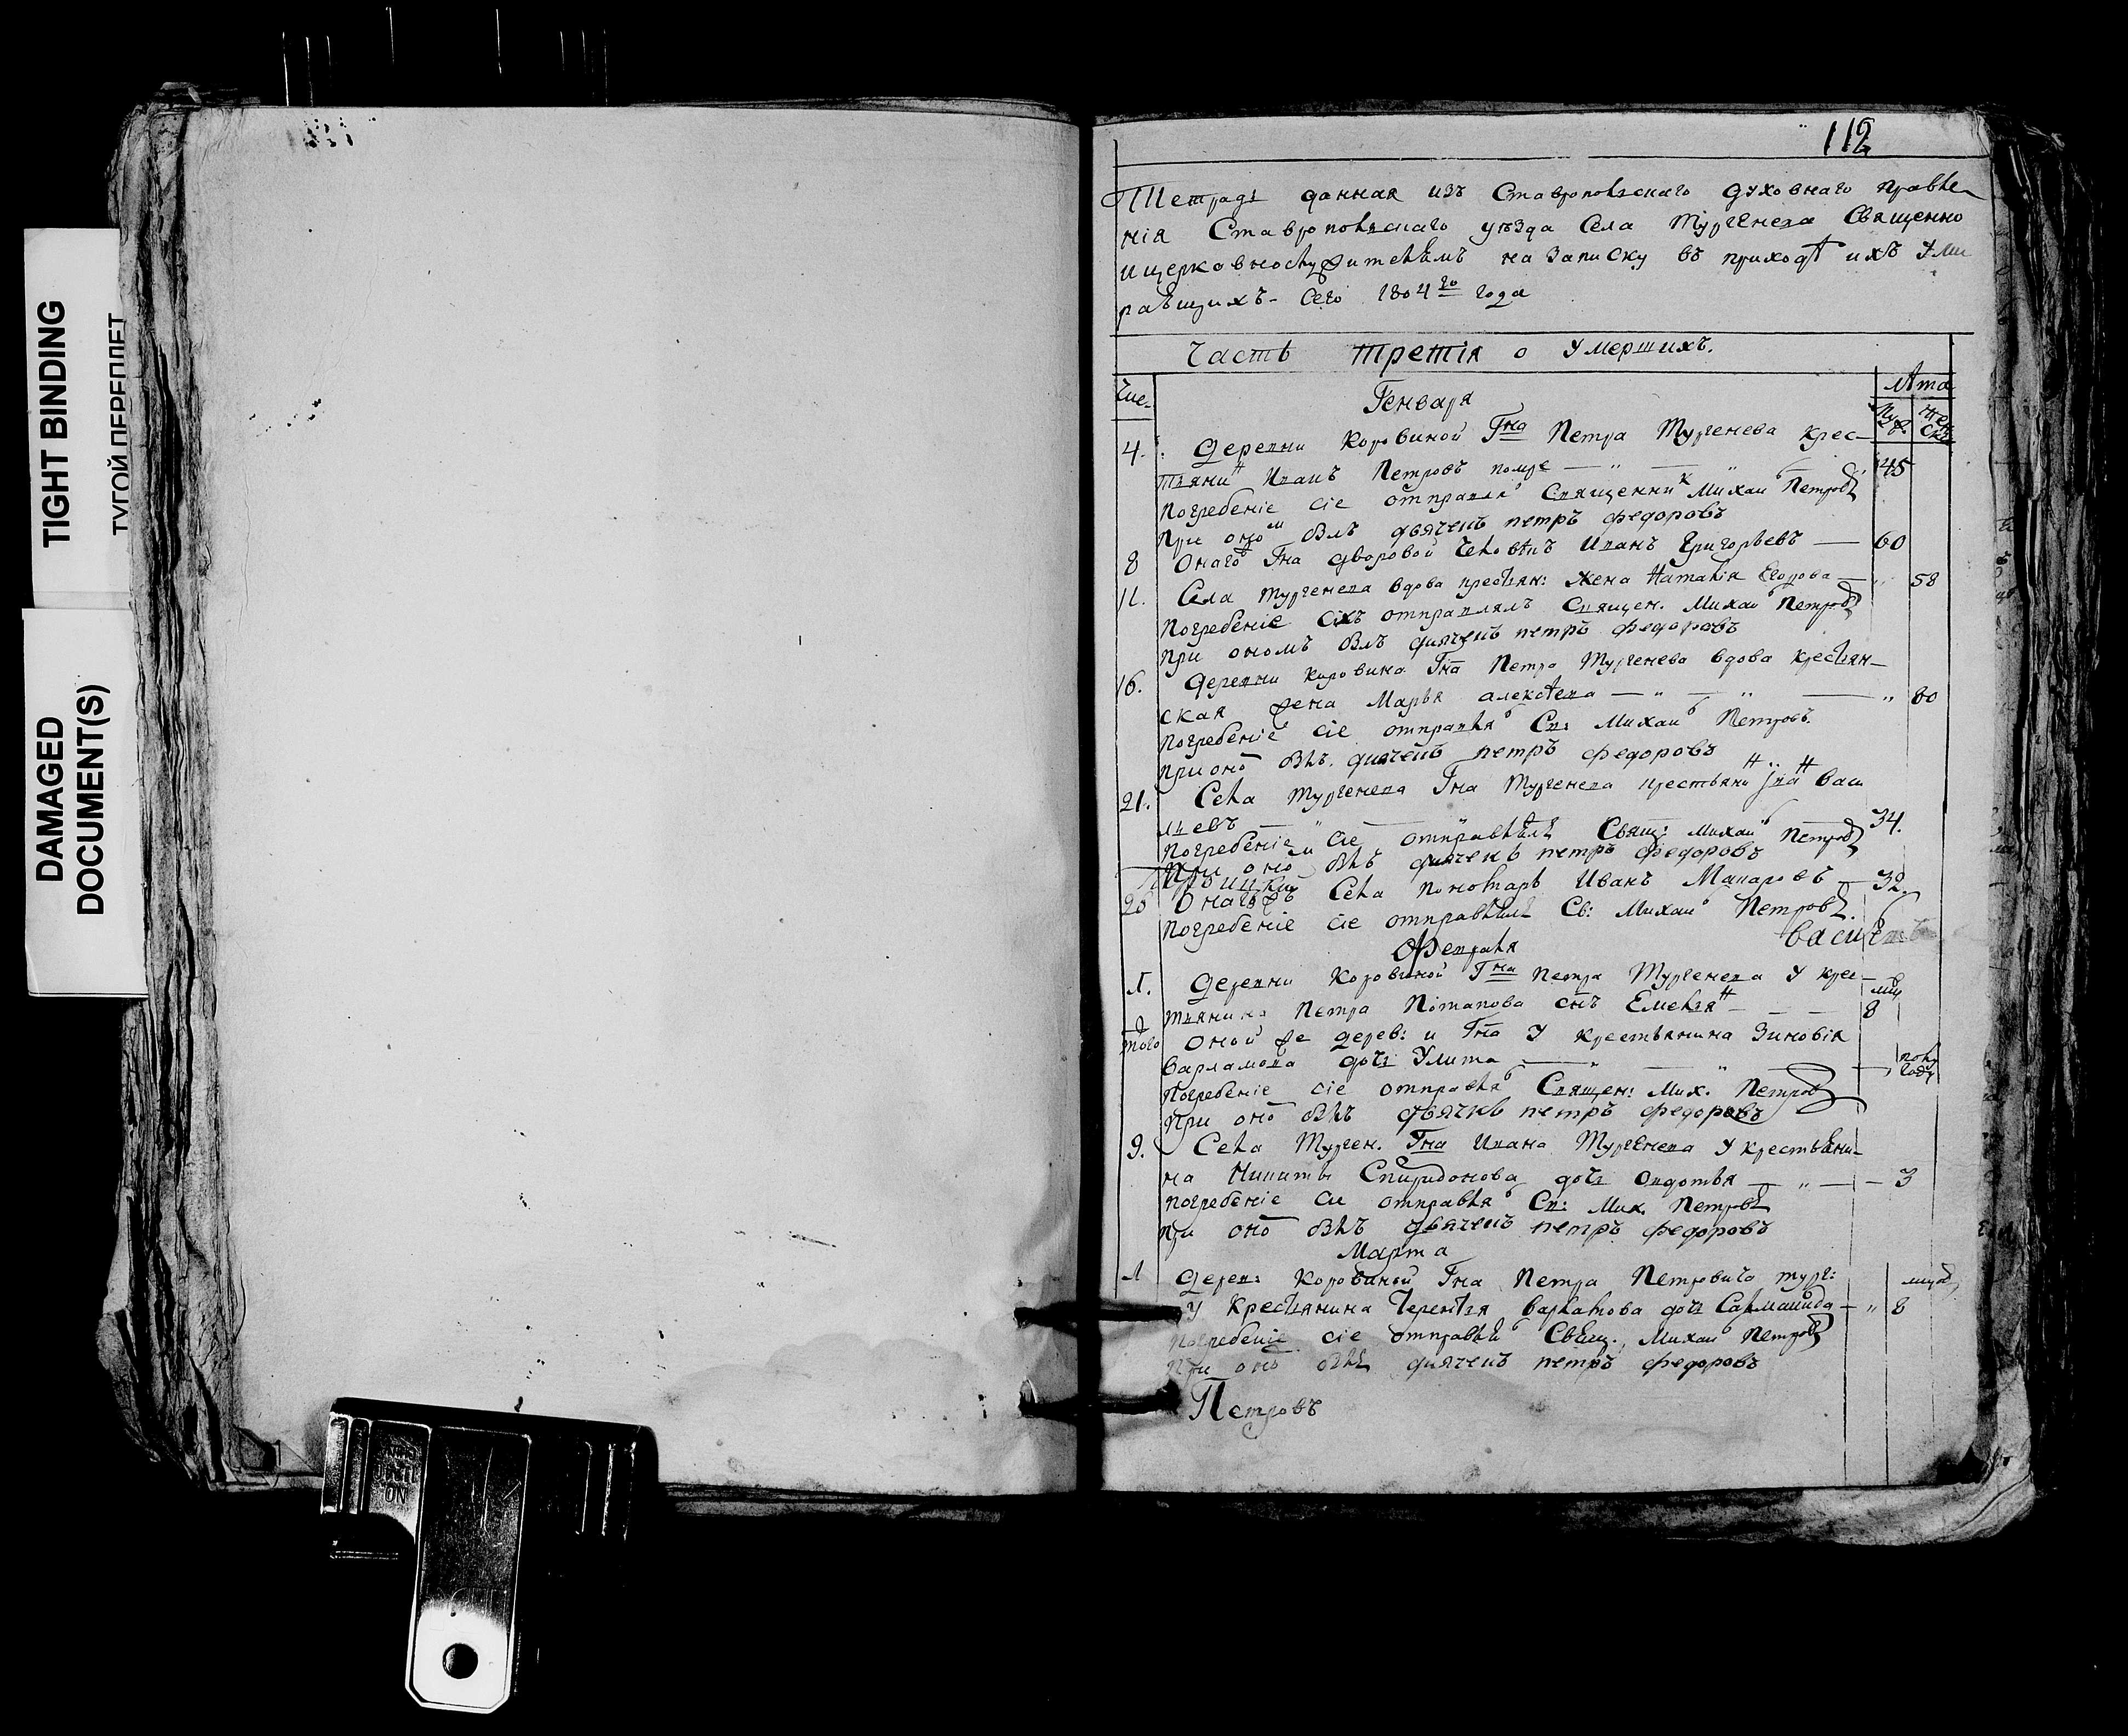 TIGHT BINDING
ТУГОЙ ПЕРЕПЛЕТ
DAMAGED
DOCUMENT(S)
112
Тетрадь данная изъ Ставропольскаго духовнаго правле
нія Ставропольскаго уѣзда Села Тургенева Священно
ицерковнослужителямъ на записку въ приходѣ ихъ Уми
рающихъ Сего 1804го года
Часть третія о Умершихъ.
Чис- Генваря Лѣта
Муж. Женск.
4. Деревни Коровиной Гна Петра Тургенева крес-
тьянинъ Иванъ Петровъ помре 45
Погребеніе сіе отправлялъ Священникъ Михаилъ Петровъ
При ономъ былъ дьячекъ петръ федоровъ
8 Онаго Гна дворовой человѣкъ Иванъ Григорьевъ 60
11. Села Тургенева вдова крестьян: жена Наталія Егорова 58
Погребеніе сихъ отправлялъ Священ. Михаилъ Петровъ
При ономъ былъ диячекъ петръ федоровъ
16. Деревни коровина Гна Петра Тургенева вдова крестьян-
ская жена Марья алексѣева 80
Погребеніе сіе отправлялъ Св: Михаилъ Петровъ.
При оно былъ диячекъ петръ федоровъ
21. Села Тургенева Гна Тургенева крестьянинъ Иванъ Васи
льевъ 34.
Погребеніе сіе отправлялъ Свящ: михаилъ Петровъ
При оно былъ диячекъ петръ федоровъ
Троицкий
28 Онагожъ Села пономарь Иванъ Макаровъ 32.
Погребеніе сіе отправлялъ Св: Михаилъ Петровъ.
Февраля
Васил
Деревни Коровиной Гна Петра Тургенева У крес-
тьянина Петра Потапова сынъ Емельянъ 8
того Оной же дерев: и Гна У крестьянина Зиновія
Варламова дочь Улита полу году
Погребеніе сіе отправлялъ Священ: Мих. Петровъ
При оно былъ дьячкъ петръ федоровъ
9. Села Турген. Гна Ивана Тургенева У крестьяни-
на Никиты Спиридонова дочь Овдотья 3
погребеніе сіе отправлялъ Св: Мих. Петровъ
При оно былъ дьячекъ петръ федоровъ
Марта
Дерев: Коровиной Гна Петра Петровича тург:
У Крестьянина Терентья варламова дочь 8
Погребеніе сіе отправлялъ Свящ: Михаилъ Петровъ
При оно былъ диячекъ петръ федоровъ
Петровъ